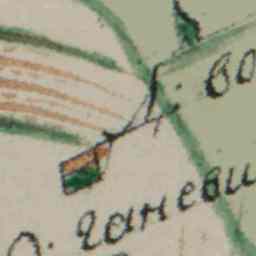 : во
О. ганеви